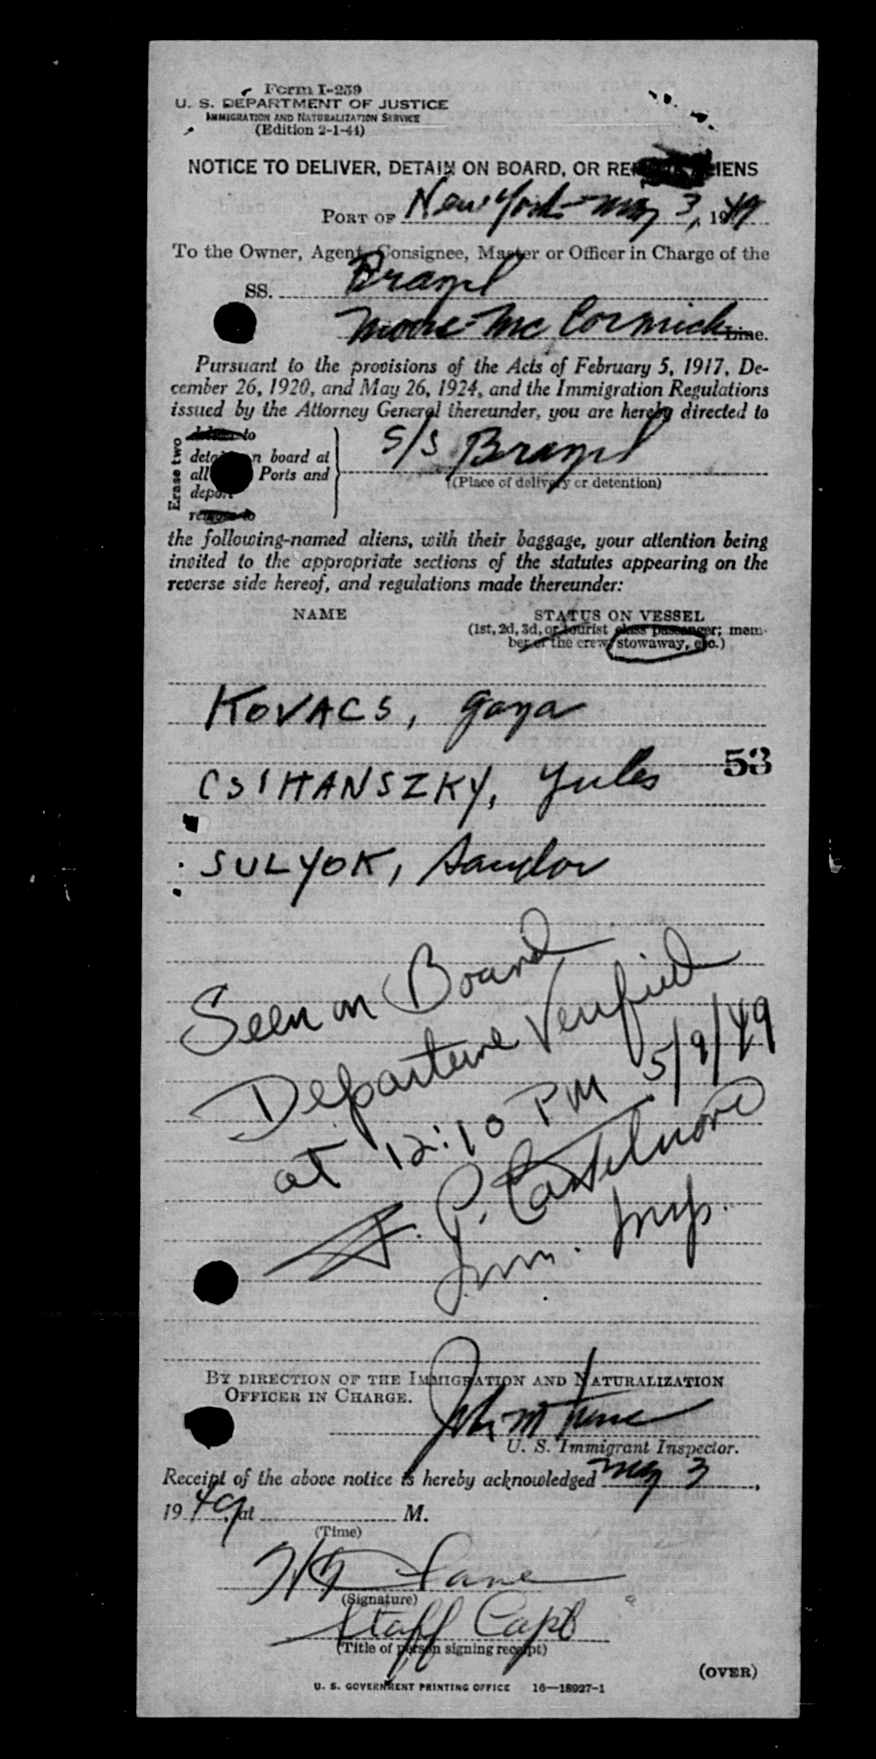 Form I-259
U. S. DEPARTMENT OF JUSTICE
IMMIGRATION AND NATURALIZATION SERVICE
(Edition 2-1-44)
NOTICE TO DELIVER, DETAIN ON BOARD, OR REMOVE ALIENS
PORT OF New York May 3, 1949
To the Owner, Agent, Consignee, Master or Officer in Charge of the
SS. Brazil
Moore-McCormick Line.
Pursuant to the provisions of the Acts of February 5, 1917, De-
cember 26, 1920, and May 26, 1924, and the Immigration Regulations
issued by the Attorney General thereunder, you are hereby directed to
Erase two
deliver to
detain on board at
all Ports and
deport
remove to
S/S Brazil
(Place of delivery or detention)
the following-named aliens, with their baggage, your attention being
invited to the appropriate sections of the statutes appearing on the
reverse side hereof, and regulations made thereunder:
NAME STATUS ON VESSEL
(1st, 2d, 3d, or tourist class passenger; mem-
ber of the crew, stowaway, etc.)
KOVACS, Gaya
53
CSIHANSZKY, Jules
SULYOK, Sandor
Seen on Board
Departure Verified
at 12:10 PM 5/9/49
Imm. Insp.
BY DIRECTION OF THE IMMIGRATION AND NATURALIZATION
OFFICER IN CHARGE.
John M
U. S. Immigrant Inspector.
Receipt of the above notice is hereby acknowledged May 3,
1949, at M.
(Time)
Lane
(Signature)
Staff Capt
(Title of person signing receipt)
(OVER)
U. S. GOVERNMENT PRINTING OFFICE 16—18927-1